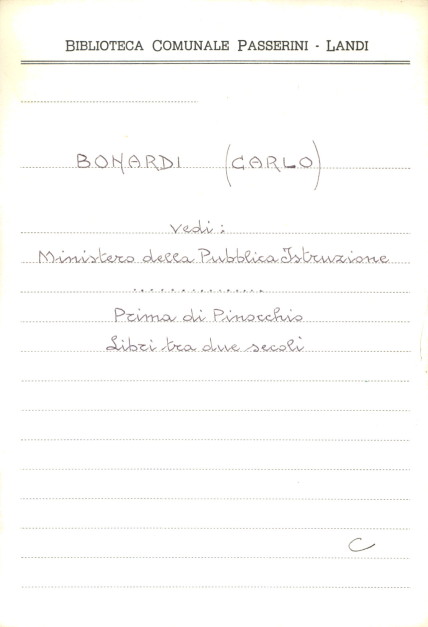 BIBLIOTECA COMUNALE PASSERINI - LANDI
BONARDI (CARLO)
vedi:
Ministero della Pubblica Istruzione
...............
Prima di Pinocchio
Libri tra due secoli
C